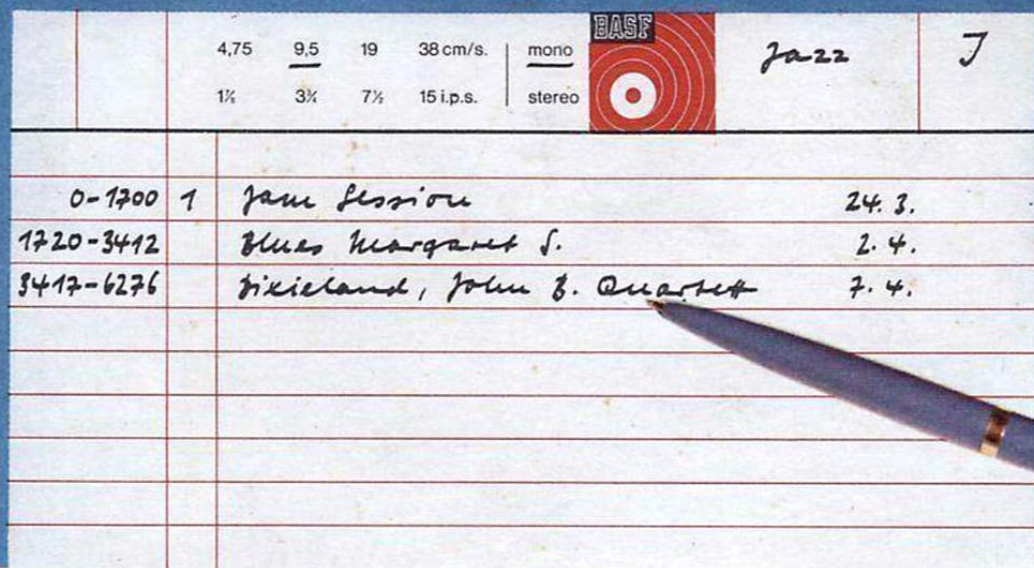 BASF
4,75 9,5 19 38 cm/s. mono Jazz J
1⅞ 3¾ 7½ 15 i.p.s. stereo
0-1700 1 Jam Session 24. 3.
1720-3412 Blues Margaret S. 2. 4.
3417-6276 Dixieland, John B. Quartett 7. 4.